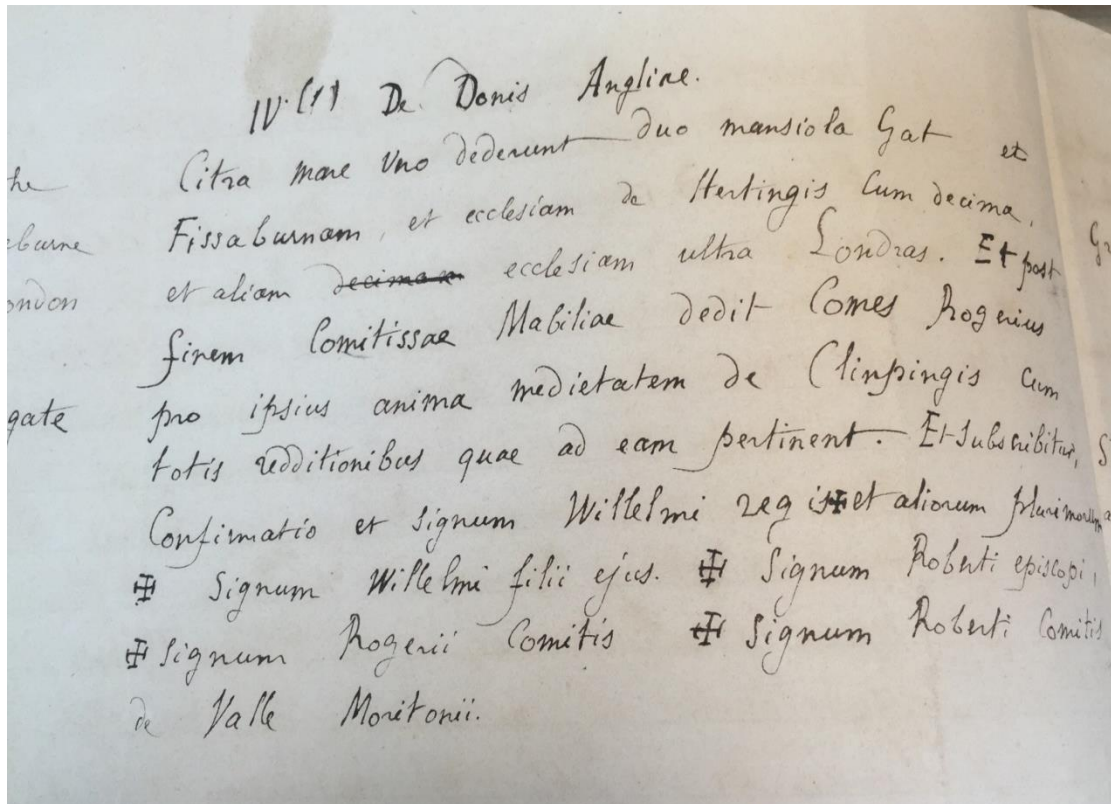 IV.(1) De Donis Angliae.
Citra mare Uno dederunt duo mansiola Gat et
Fissaburnam, et ecclesiam de Hertingis Cum decima,
et aliam decimam ecclesiam ultra Londras. Et post
finem Comitissae Mabiliae dedit Comes Rogerius
pro ipsius anima medietatem de Clinpingis cum
totis redditionibus quae ad eam pertinent. Et Subscribitur,
Confirmatio et Signum Willelmi regis ✠ et aliorum plurimorum
✠ Signum Willelmi filii ejus. ✠ Signum Roberti episcopi,
✠ Signum Rogerii Comitis ✠ Signum Roberti Comitis
de Valle Moritonii.
he
burne
ondon
gate